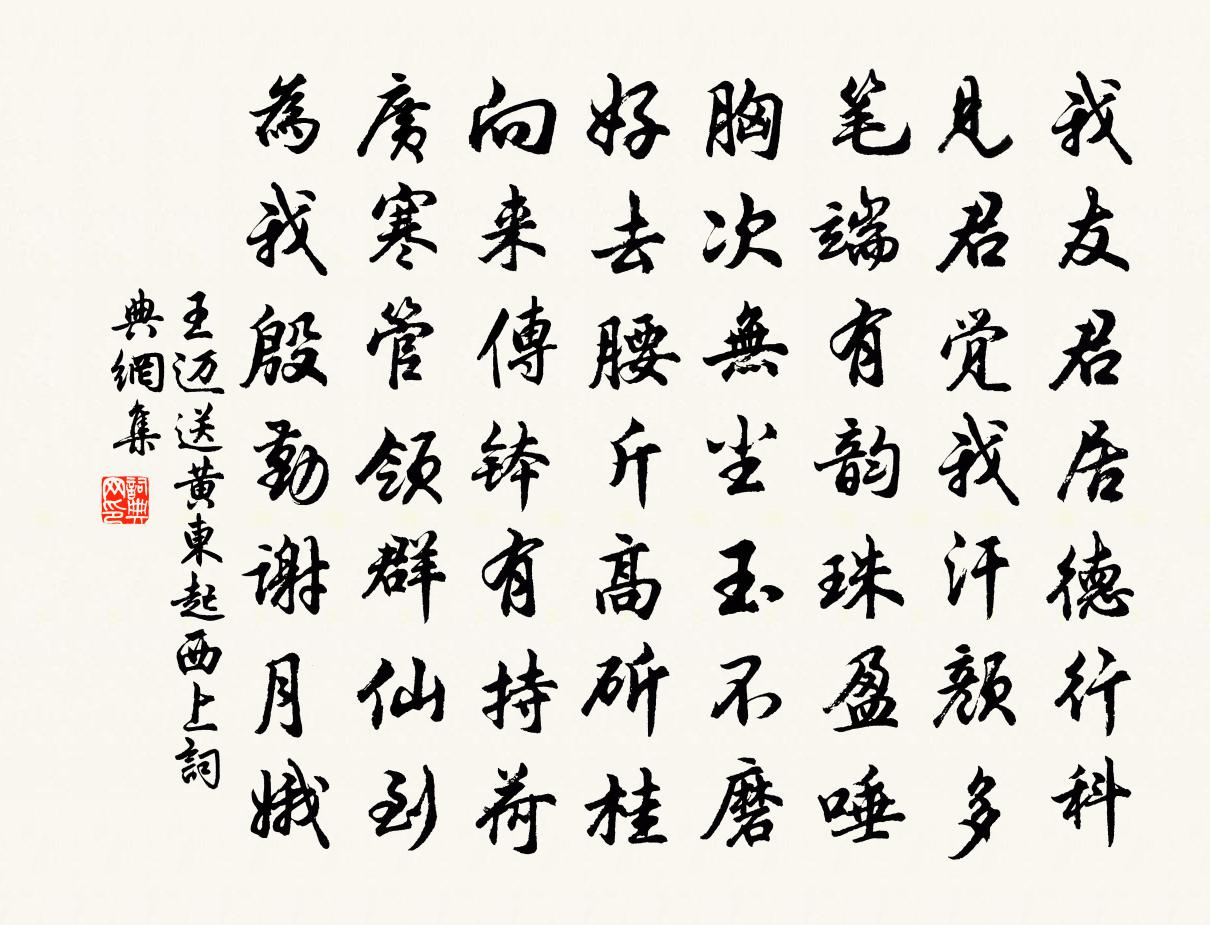 我友君居德行科
見君覚我汗顔多
笔端有韵珠盈唾
胸次無尘玉不磨
好去腰斤高斫桂
向来傳钵有持荷
廣寒管领群仙到
為我殷勤謝月娥
王迈送黄東起西上詞
典網集
詞典
网印